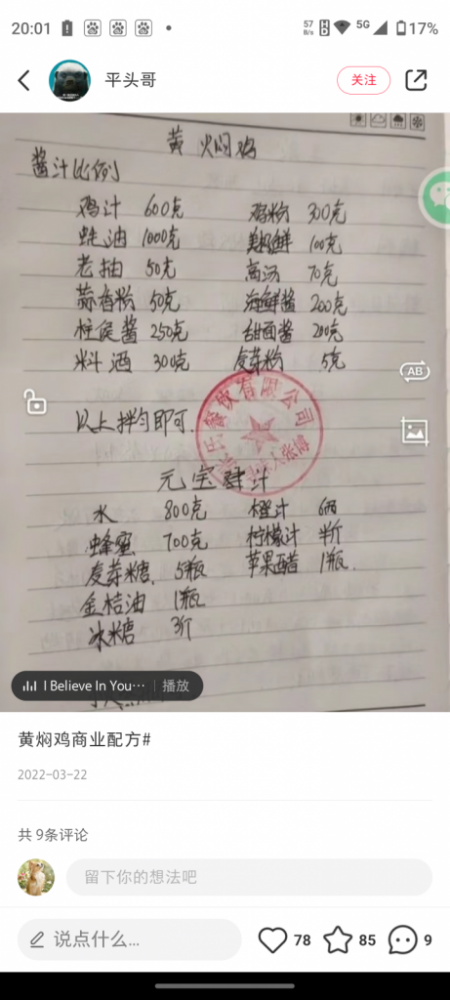 20:01
57 B/s
5G
17%
平头哥
关注
黄焖鸡
酱汁比例
鸡汁 600克 鸡粉 300克
蚝油 1000克 美极鲜 100克
老抽 50克 高汤 70克
蒜香粉 50克 海鲜酱 200克
柱侯酱 250克 甜面酱 200克
料酒 300克 麦芽粉 5克
AB
以上拌匀即可.
餐饮有限公司
元宝 汁
水 800克 橙汁 6两
蜂蜜 700克 柠檬汁 半斤
麦芽糖. 5瓶 苹果醋 1瓶.
金桔油 1瓶
冰糖 3斤
I Believe In You… 播放
黄焖鸡商业配方#
2022-03-22
共 9条评论
留下你的想法吧
说点什么...
78
85
9